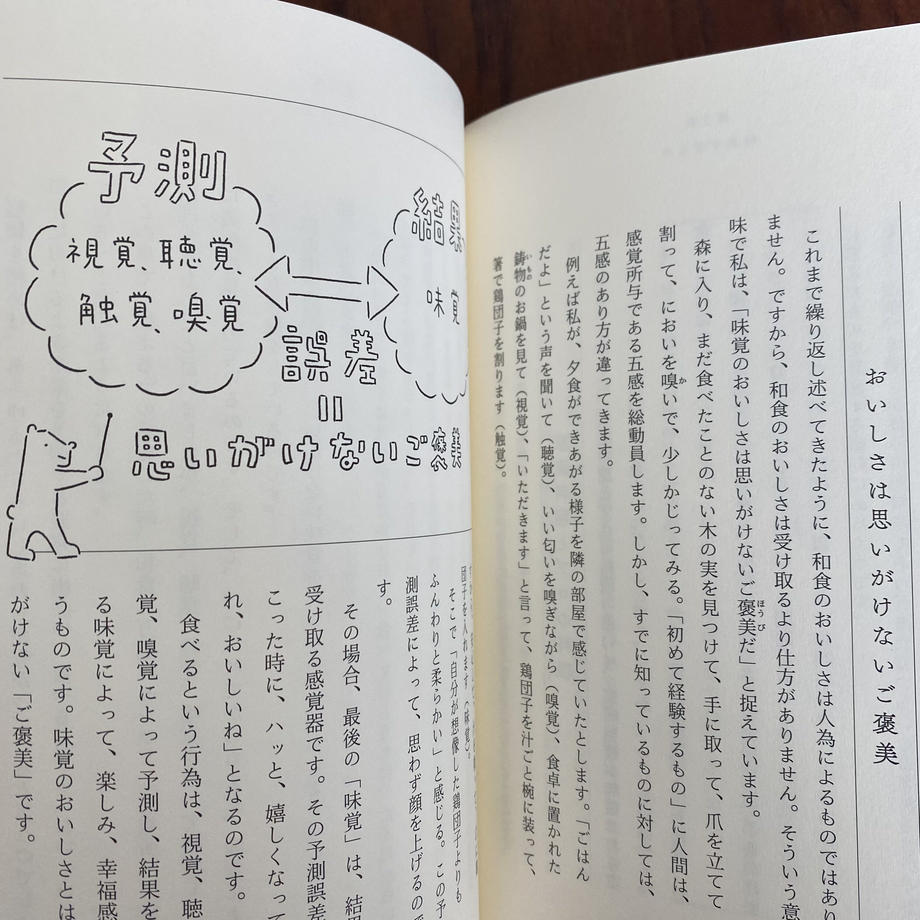 おいしさは思いがけないご褒美
これまで繰り返し述べてきたように、和食のおいしさは人為によるものではあり
ません。ですから、和食のおいしさは受け取るより仕方がありません。そういう意
味で私は、「味覚のおいしさは思いがけないご褒美だ」と捉えています。
ほうび
森に入り、まだ食べたことのない木の実を見つけて、手に取って、爪を立てて
割って、においを嗅いで、少しかじってみる。「初めて経験するもの」に人間は、
か
感覚所与である五感を総動員します。しかし、すでに知っているものに対しては、
五感のあり方が違ってきます。
例えば私が、夕食ができあがる様子を隣の部屋で感じていたとします。「ごはん
だよ」という声を聞いて（聴覚）、いい匂いを嗅ぎながら（嗅覚）、食卓に置かれた
鋳物のお鍋を見て（視覚）、「いただきます」と言って、鶏団子を汁ごと椀に装って、
いもの
箸で鶏団子を割ります（触覚）。
予測
視覚、聴覚、
触覚、嗅覚
結果
味覚
誤差
＝
思いがけないご褒美
団子を入れます（味覚）。
そこで「自分が想像した鶏団子よりも
ふんわりと柔らかい」と感じる。この予
測誤差によって、思わず顔を上げるので
す。
その場合、最後の「味覚」は、結
受け取る感覚器です。その予測誤差
こった時に、ハッと、嬉しくなって
れ、おいしいね」となるのです。
食べるという行為は、視覚、聴
覚、嗅覚によって予測し、結果を
る味覚によって、楽しみ、幸福感
うものです。味覚のおいしさとは
がけない「ご褒美」です。